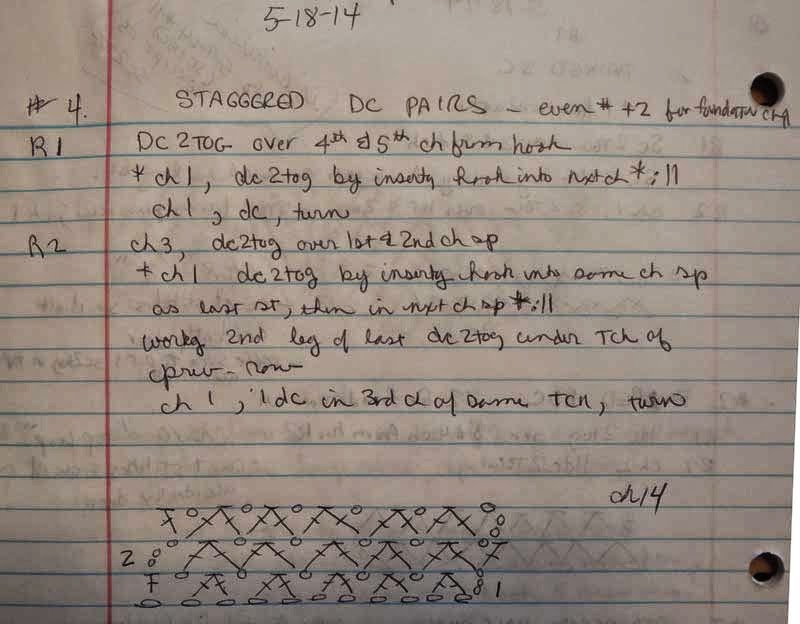 5-18-14
# 4. STAGGERED DC PAIRS - even # +2 for foundatn ch
R1 DC 2TOG over 4th & 5th ch from hook
* ch 1, dc2tog by insertg hook into nxt ch *:||
ch 1, dc, turn
R2 ch3, dc2tog over 1st & 2nd ch sp
* ch 1 dc2tog by insertg hook into same ch sp
as last st, then in nxt ch sp *:||
workg 2nd leg of last dc2tog under Tch of
prev row
ch 1, 1 dc in 3rd ch of same TCH, turn
ch 14
2
1